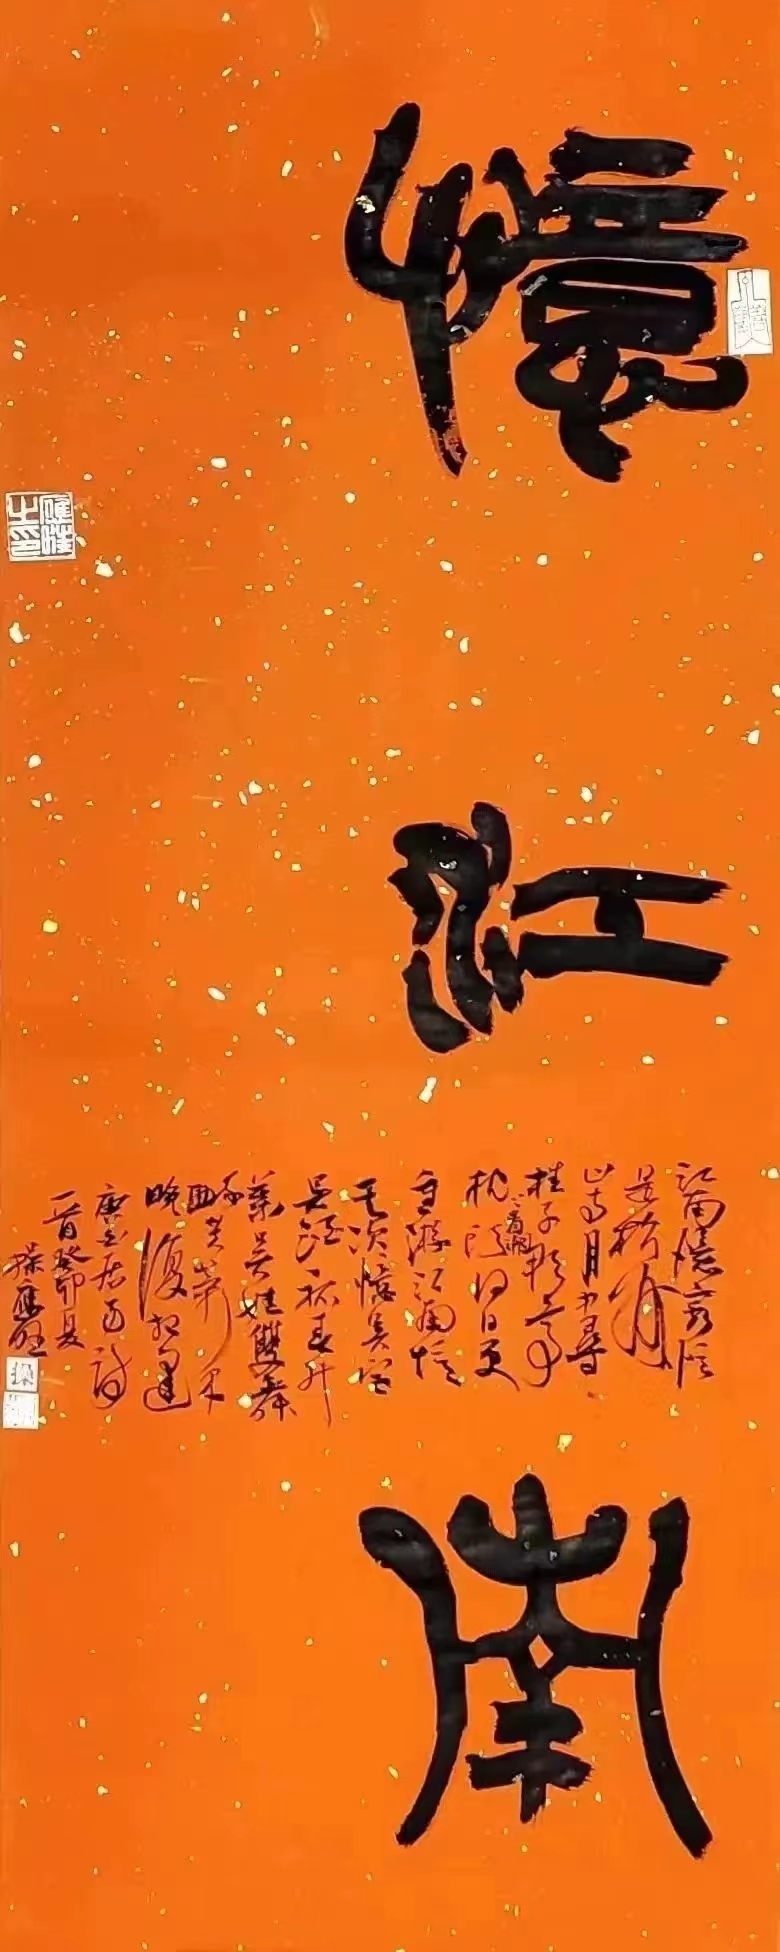 憶江南
江南憶最憶
是杭州
山寺月中尋
桂子郡亭
枕上看潮頭何日更
重游江南憶
其次憶吳宮
吳酒一杯春竹
葉吳娃雙舞
醉芙蓉早
晚復相逢
唐白居易詩
一首癸卯夏